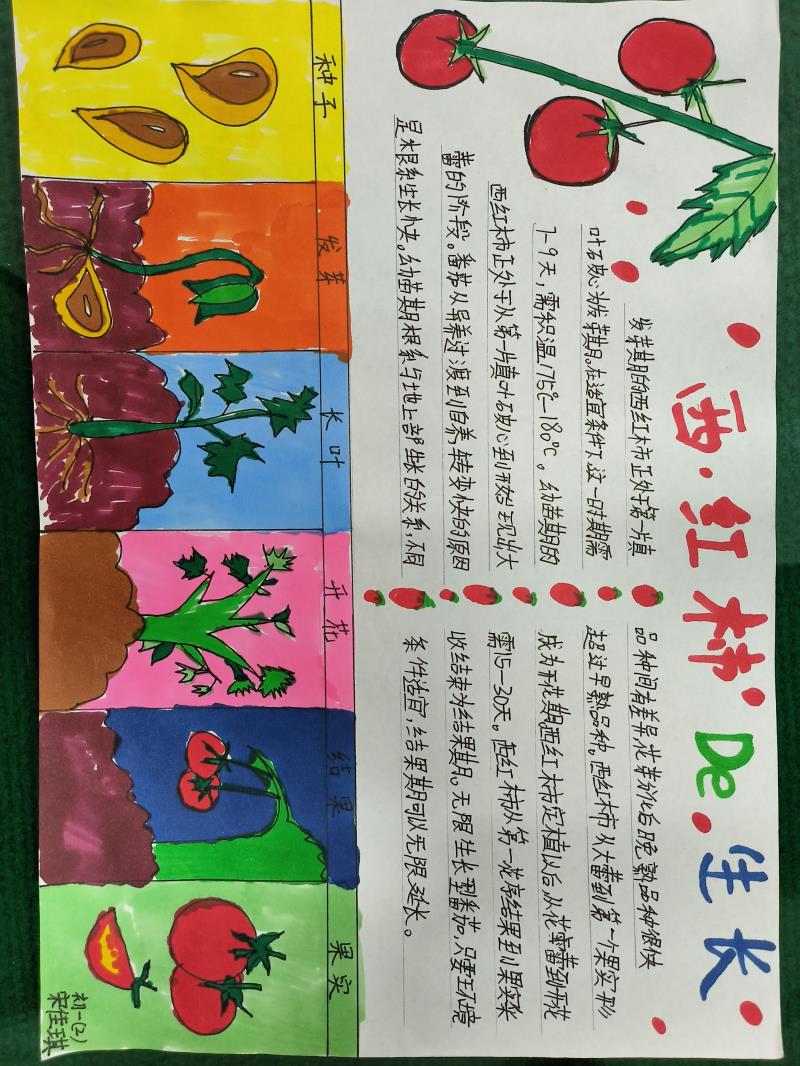 西红柿De生长
发芽期的西红柿正处于第一片真
叶破心为发芽期。在适宜条件下这一时期需
7-9天，需积温175℃-180℃。幼苗期的
西红柿正处于从第一片真叶破心到开始现出大
蕾的阶段。番茄从异养过渡到自养转变快的原因
是根系生长快。幼苗期根系与地上部生长的关系，不同
品种间有差异，花芽分化后晚熟品种很快
超过早熟品种。西红柿从大蕾到第一个果实形
成为开花期西红柿定植以后，从花蕾到开花
需15-30天。西红柿从第一花序结果到果实采
收结束为结果期。无限生长型番茄，只要环境
条件适宜，结果期可以无限延长。
种子
发芽
长叶
开花
结果
果实
初一(2)
宋佳琪